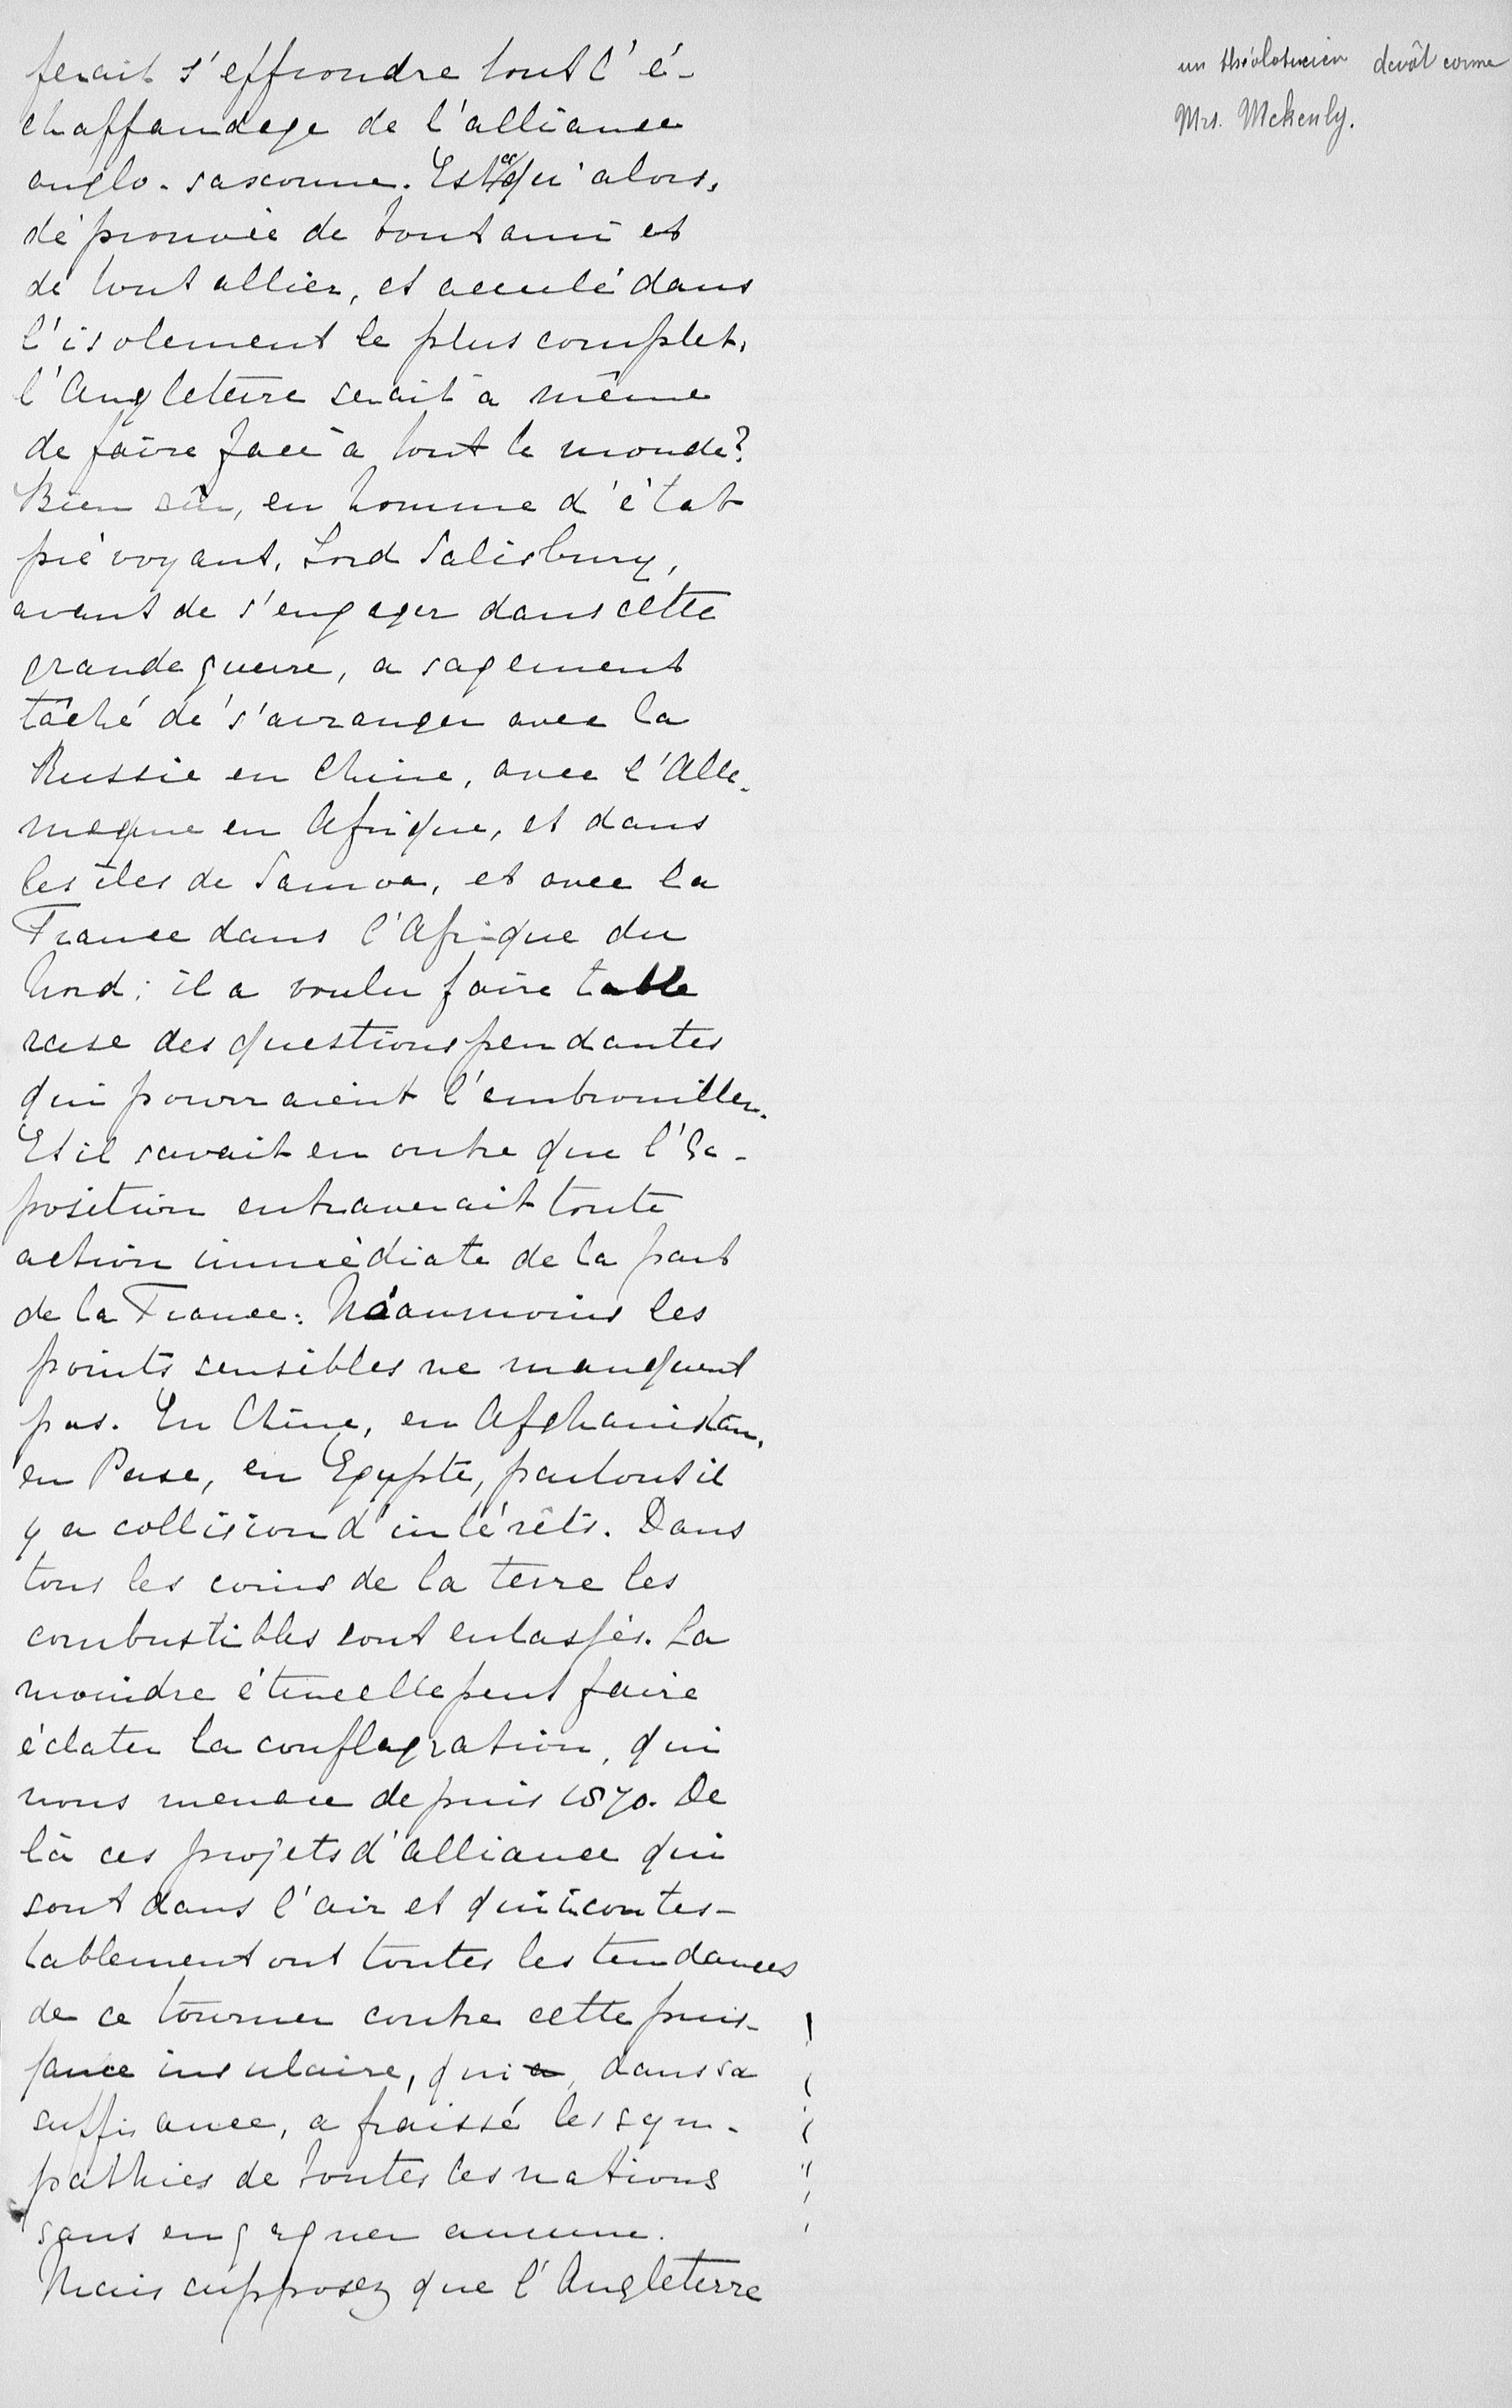 ferait s'effrondre tout l'é-
chaffaudage de l'alliance
anglo-saxonne. Est ce qu'alors,
dé prouvée de tout ami et
de tout allier, et acculé dans
l'isolement le plus complet,
l'Angleterre serait à même
de faire face à tout le monde?
Bien sûr, en homme d'état
prévoyant, Lord Salisbury,
avant de s'engager dans cette
grande guerre, a sagement
tâché de s'arranger avec la
Russie en Chine, avec l'Alle-
magne en Afrique, et dans
les îles de Samoa, et avec la
France dans l'Afrique du
Nord; il a voulu faire table
rase des questions pendantes
qui pourraient l'embrouiller.
Et il savait en outre que l'Ex-
position entraverait toute
action immédiate de la part
de la France. Néanmoins les
points sensibles ne manquent
pas. En Chine, en Afghanistan,
en Perse, en Egypte, partout il
y a collision d'intérêts. Dans
tous les coins de la terre les
combustibles sont entassés. La
moindre étincelle peut faire
éclater la conflagration, qui
nous menace depuis 1870. De
là ces projets d'alliance qui
sont dans l'air et qui incontes-
tablement ont toutes les tendances
de ce tourner contre cette puis-
sance insulaire, qui a, dans sa
suffisance, a fraissé les sym-
pathies de toutes les nations
sans en gagner aucune.
Mais supposez que l'Angleterre
un devôt comme
Mrs. Mckenly.